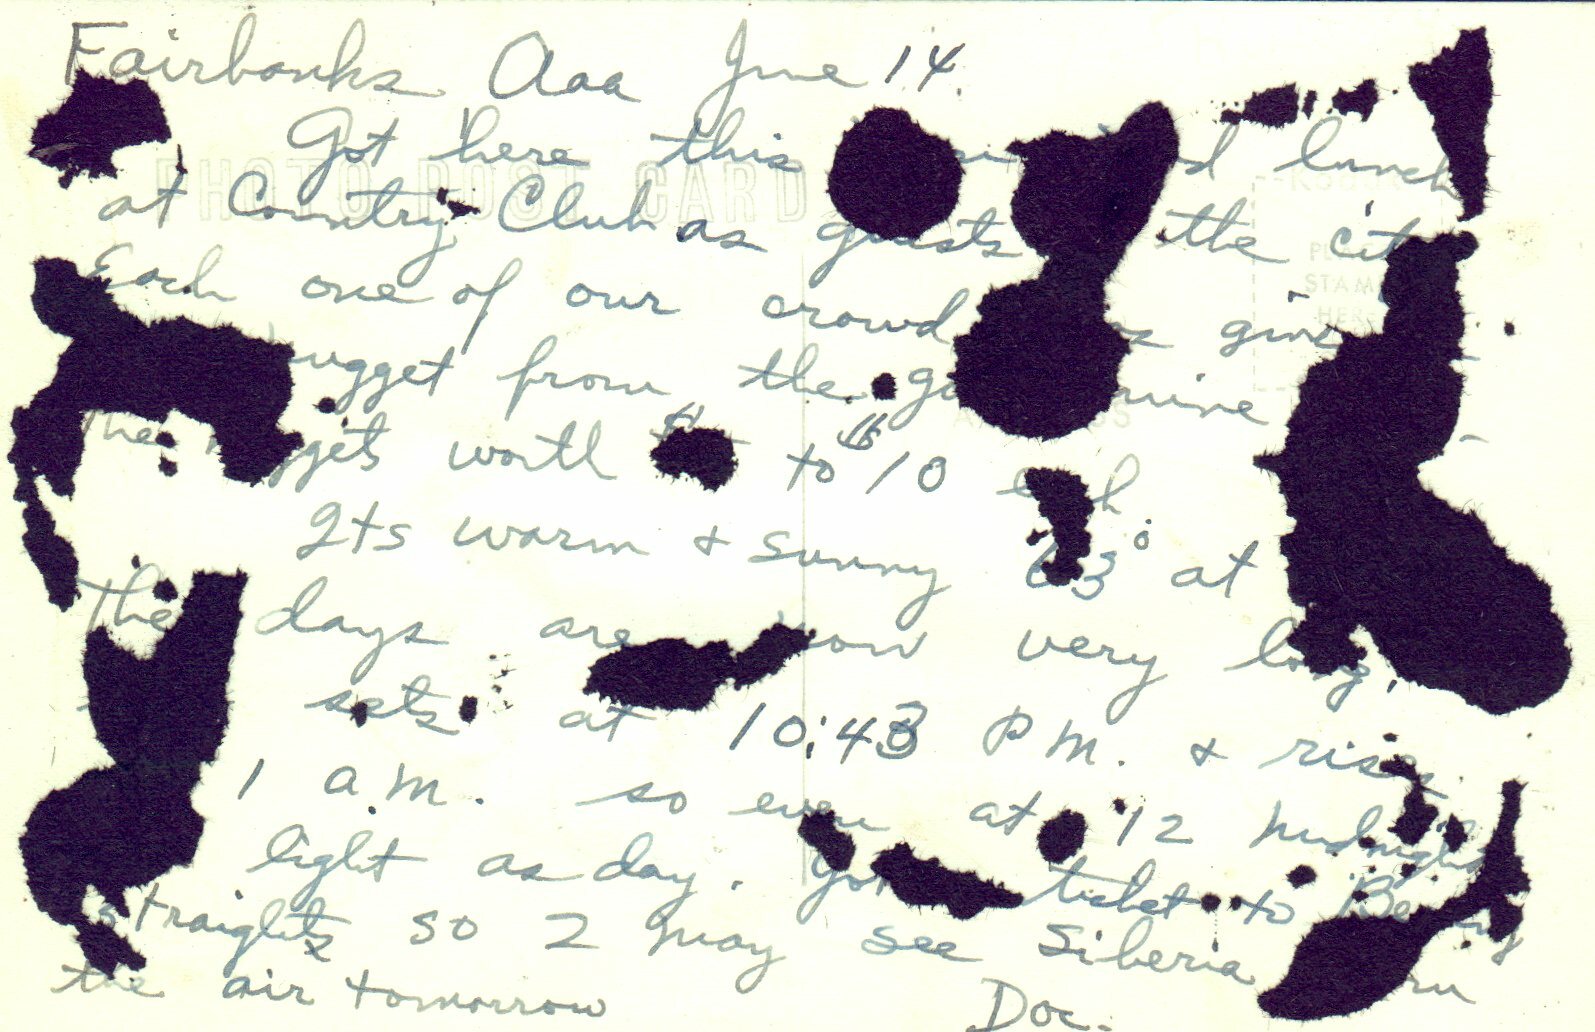 Fairbanks Aaa June 14.
Got here this lunch
at Country Club as guests the city
Each one of our crowd given
nugget from the mine
The nuggets worth $ to $10 each
Its warm & sunny 63° at
The days are now very long,
sets at 10:43 P.M. & rises
1 A.M. so even at 12 midnight
light as day. Got ticket to Bering
straights so I may see Siberia
the air tomorrow Doc.
PHOTO POST CARD
PLACE
STAMP
HERE